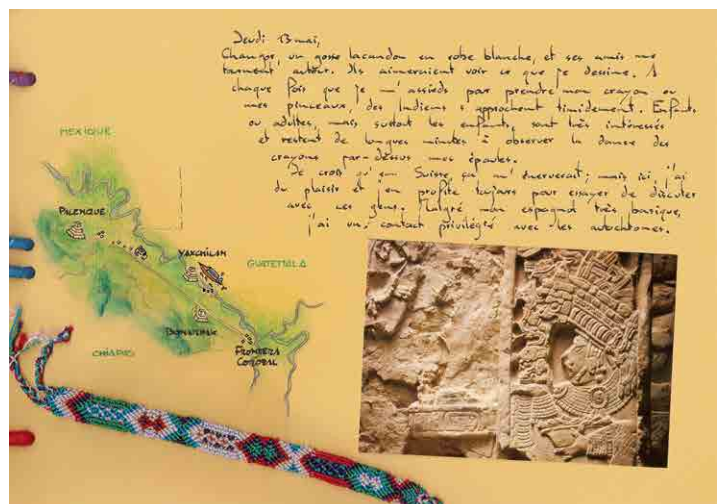 Jeudi 13 mai,
Chancor, un gosse lacandon en robe blanche, et ses amis me
tournent autour. Ils aimeraient voir ce que je dessine. A
chaque fois que je m'assieds pour prendre mon crayon ou
mes pinceaux, des Indiens s'approchent timidement. Enfants
ou adultes, mais surtout les enfants, sont très intéressés
et restent de longues minutes à observer la danse des
crayons par-dessus mes épaules.
Je crois qu'en Suisse, ça m'énerverait; mais ici, j'ai
du plaisir et j'en profite toujours pour essayer de discuter
avec ces gens. Malgré mon espagnol très basique,
j'ai un contact privilégié avec les autochtones.
MEXIQUE
PALENQUE
YAXCHILAN
GUATEMALA
BONAMPAK
FRONTERA
COROZAL
CHIAPAS